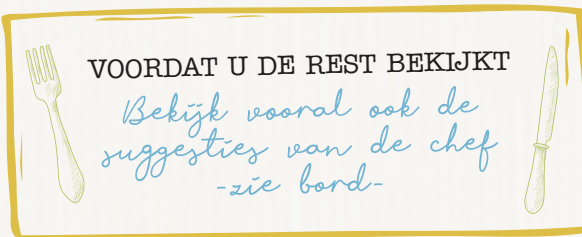 VOORDAT U DE REST BEKIJKT
Bekijk vooral ook de
suggesties van de chef
-zie bord-